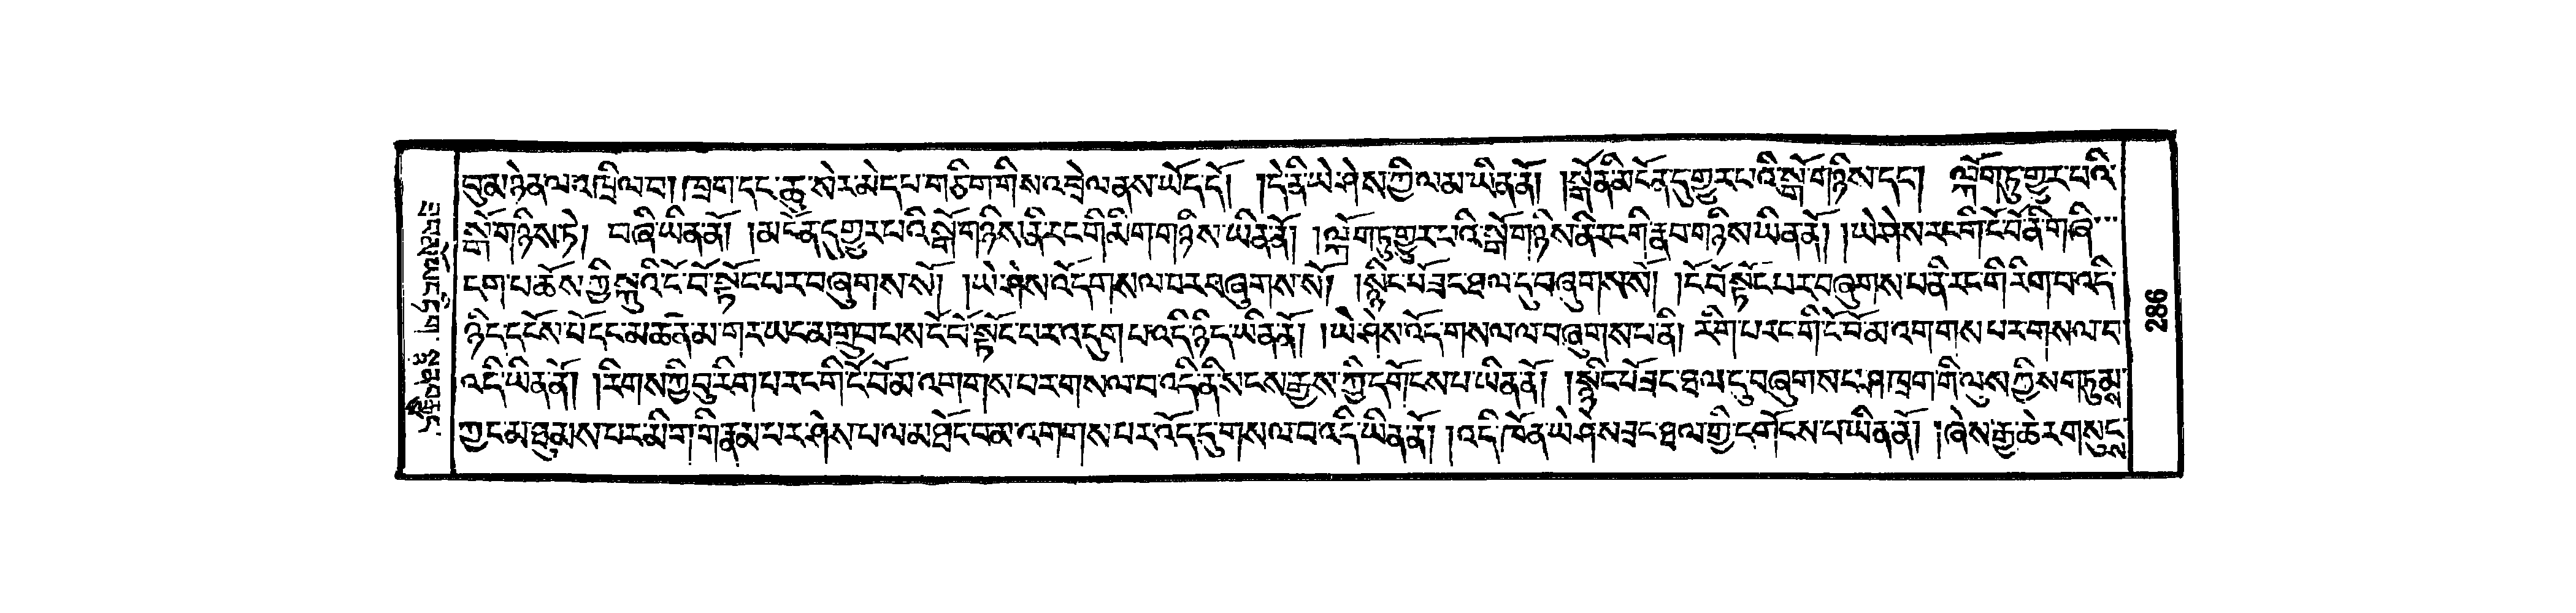 བུམ་ཉེན་ལ་འཁྲིལ་བ། ཁྲག་དང་ཆུ་སེར་མེད་པ་གཅིག་གིས་འབྲེལ་ནས་ཡོད་དོ། །དེ་ནི་ཡེ་ཤེས་ཀྱི་ལམ་ཡིན་ནོ། །སྒོ་ནི་མངོན་དུ་གྱུར་པའི་སྒོ་གཉིས་དང༌། ལྐོག་ཏུ་གྱུར་པའི་
སྒོ་གཉིས་ཏེ། བཞི་ཡིན་ནོ། །མངོན་དུ་གྱུར་པའི་སྒོ་གཉིས་ནི་རང་གི་མིག་གཉིས་ཡིན་ནོ། །ལྐོག་ཏུ་གྱུར་པའི་སྒོ་གཉིས་ནི་རང་གི་རྣ་བ་གཉིས་ཡིན་ནོ། །ཡེ་ཤེས་རང་གི་ངོ་བོ་ནི་གཞི་
དག་པ་ཆོས་ཀྱི་སྐུའི་ངོ་བོ་སྟོང་པར་བཞུགས་སོ། །ཡེ་ཤེས་འོད་གསལ་བར་བཞུགས་སོ། །སྙིང་པོ་ཟང་ཐལ་དུ་བཞུགས་སོ། །ངོ་བོ་སྟོང་པར་བཞུགས་པ་ནི་རང་གི་རིག་པ་འདི་
ཉིད་དངོས་པོ་དང་མཚན་མ་གར་ཡང་མ་གྲུབ་པས་ངོ་བོ་སྟོང་པར་འདུག་པ་འདི་ཉིད་ཡིན་ནོ། །ཡེ་ཤེས་འོད་གསལ་ལ་བཞུགས་པ་ནི། རིག་པ་རང་གི་ངོ་བོ་མ་འགགས་པར་གསལ་བ་
འདི་ཡིན་ནོ། །རིགས་ཀྱི་བུ་རིག་པ་རང་གི་ངོ་བོ་མ་འགགས་པར་གསལ་བ་འདི་ནི་སངས་རྒྱས་ཀྱི་དགོངས་པ་ཡིན་ནོ། །སྙིང་པོ་ཟང་ཐལ་དུ་བཞུགས་པ་ཤ་ཁྲག་གི་ལུས་ཀྱིས་གཏུམས་
ཀྱང་མ་ཐུམས་པར་མིག་གི་རྣམ་པར་ཤེས་པ་ལ་མཐོང་བ་མ་འགགས་པར་འོད་དུ་གསལ་བ་འདི་ཡིན་ནོ། །འདི་ཁོ་ན་ཡེ་ཤེས་ཟང་ཐལ་གྱི་དགོངས་པ་ཡིན་ནོ། །ཞེས་རྒྱ་ཆེར་གསུངས་
286